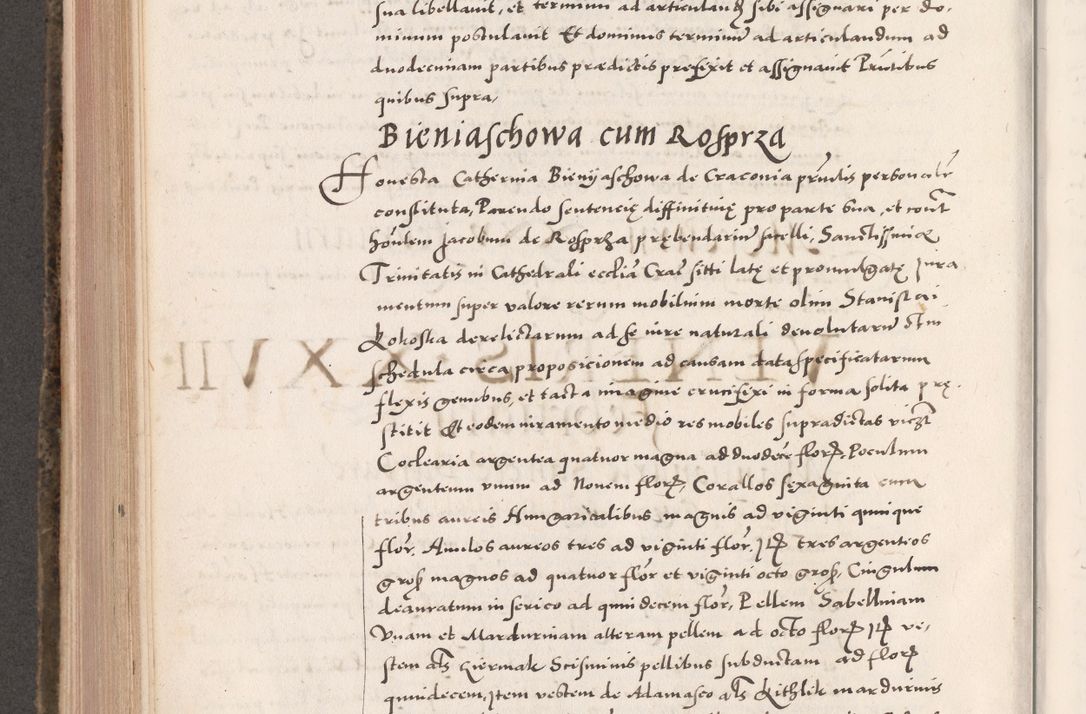 sua libellavit, et terminum ad articulandū sibi assignari per do-
minum postulavit Et dominus terminū ad articulandum ad
duodecimam partibus prædictis præfixit et assignavit Pñtibus
quibus supra,
Bieniaschowa cum Rosprza
Honesta Catherina Bienyaschowa de Craconia pñtialis personalr̃
constituta, Parendo sentencię diffinitivę pro parte sua, et contr̃
hõulem Jacobum de Rosprza prębendariū sacelli, Sanctissimæ
Trinitatis in Cathedrali eccliã Crač sitti latę et promulgatę Jura
mentum super valore rerum mobilium morte olim Stanislai
Kokoska derelictarum ad se iure naturali devolutarū ctm
schedula circa propositionem ad causam data specificatarum
flexis genibus, et tacta imagine crucifixi in forma solita prę-
stitit Et eodem iuramento medio res mobiles supradictas vicz̃t
Coclearia argentea quatuor magna ad duodecẽ flor̃, Poculum
argenteum unum ad Novem flor̃, Corallos sexaginta cum
tribus aureis Hungaricalibus magnis ad viginti quinque
flor̃. Anulos aureos tres ad viginti flor̃. Itẽ tres argenteos
groß magnos ad quatuor flor̃ et viginti octo groß, Cingulum
deauratum in serico ad quindecem flor̃, Pellem Sabellinam
Unam et Mardurinam alteram pellem ad octo flor̃ Itẽ ve-
stem als̃ Kiermak Scisminis pellibus subductam ad flor̃
quindecem, Item vestem de Adamasco als̃ Kithlik mardurinis